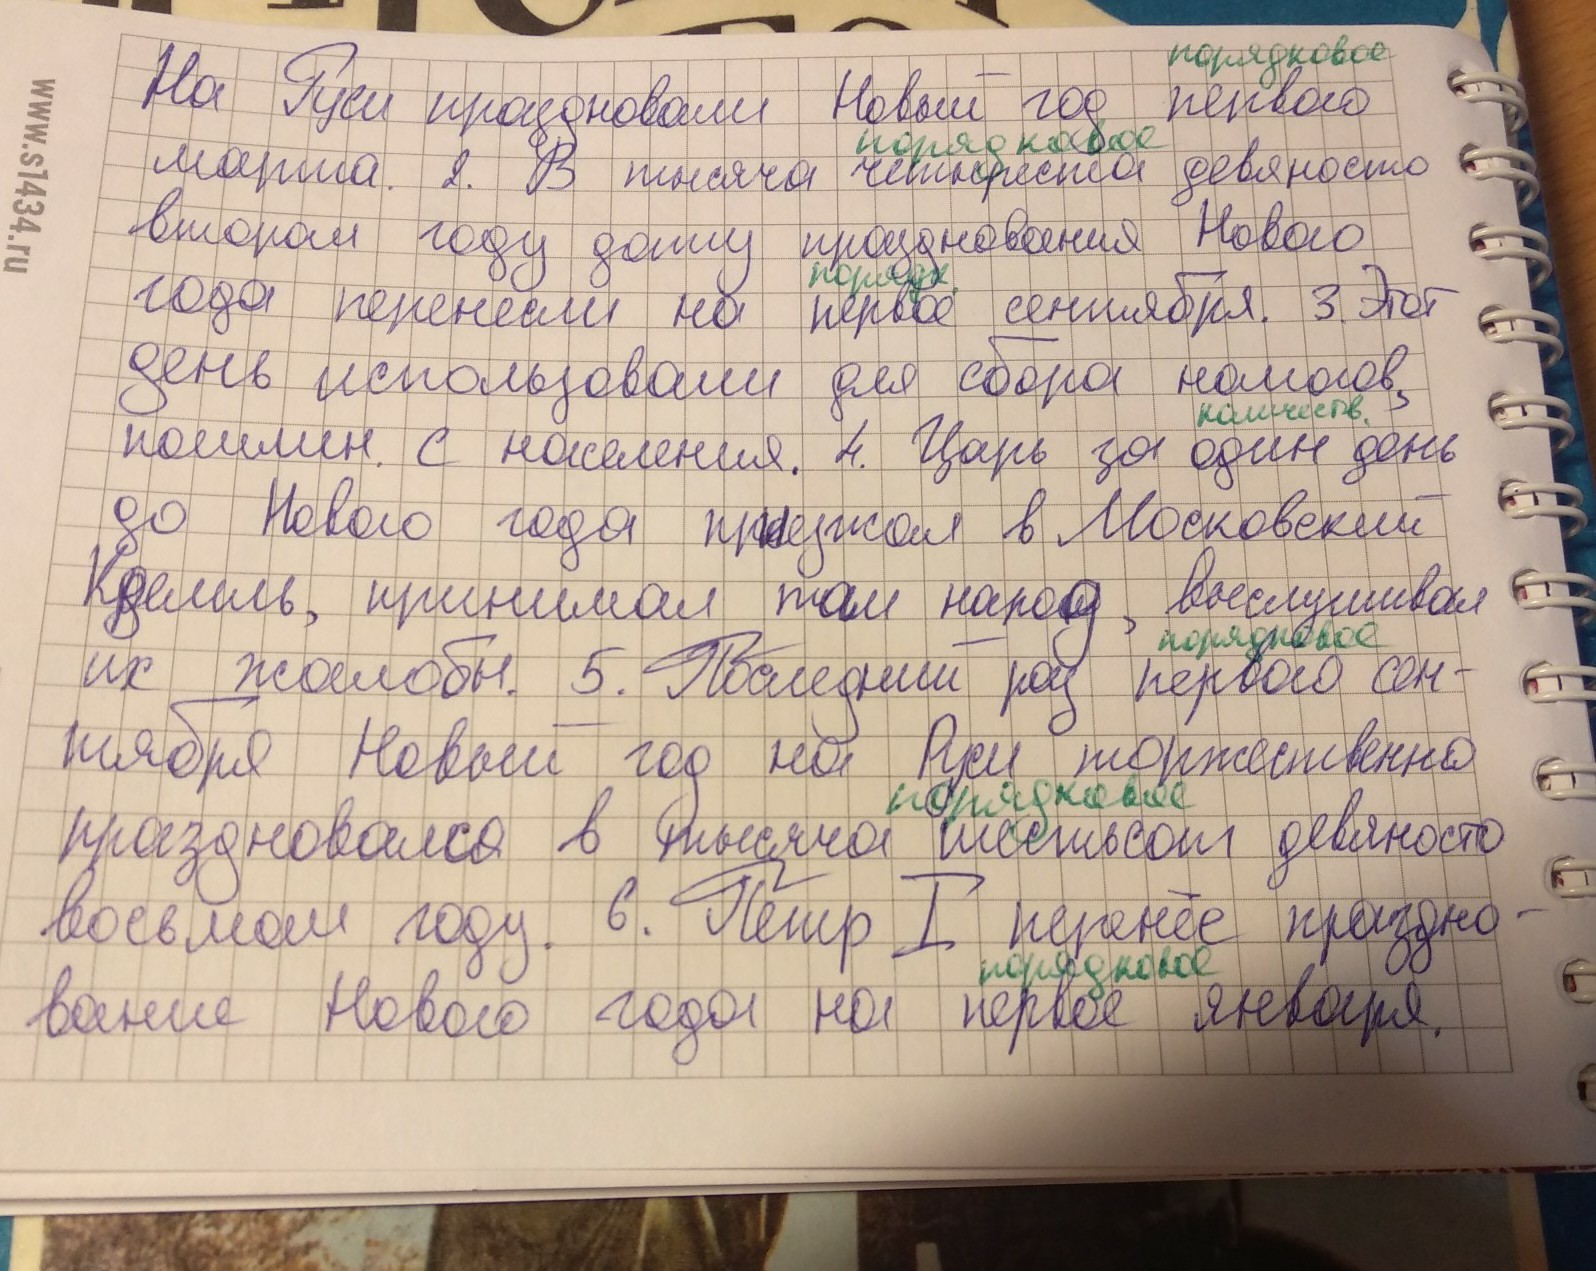 www.s1434.ru
порядковое
На Руси праздновали Новый год первого
порядковое
марта. 2. В тысяча четыреста девяносто
втором году дату празднования Нового
порядк.
года перенесли на первое сентября. 3. Этот
день использовали для сбора налогов,
количеств.
пошлин. с населения. 4. Царь за один день
до Нового года приезжал в Московский
Кремль, принимал там народ, выслушивал
порядковое
их жалобы. 5. Последний раз первого сен-
тября Новый год на Руси торжественно
порядковое
праздновался в тысяча шестьсот девяносто
восьмом году. 6. Пётр I перенёс праздно-
порядковое
вание Нового года на первое января.